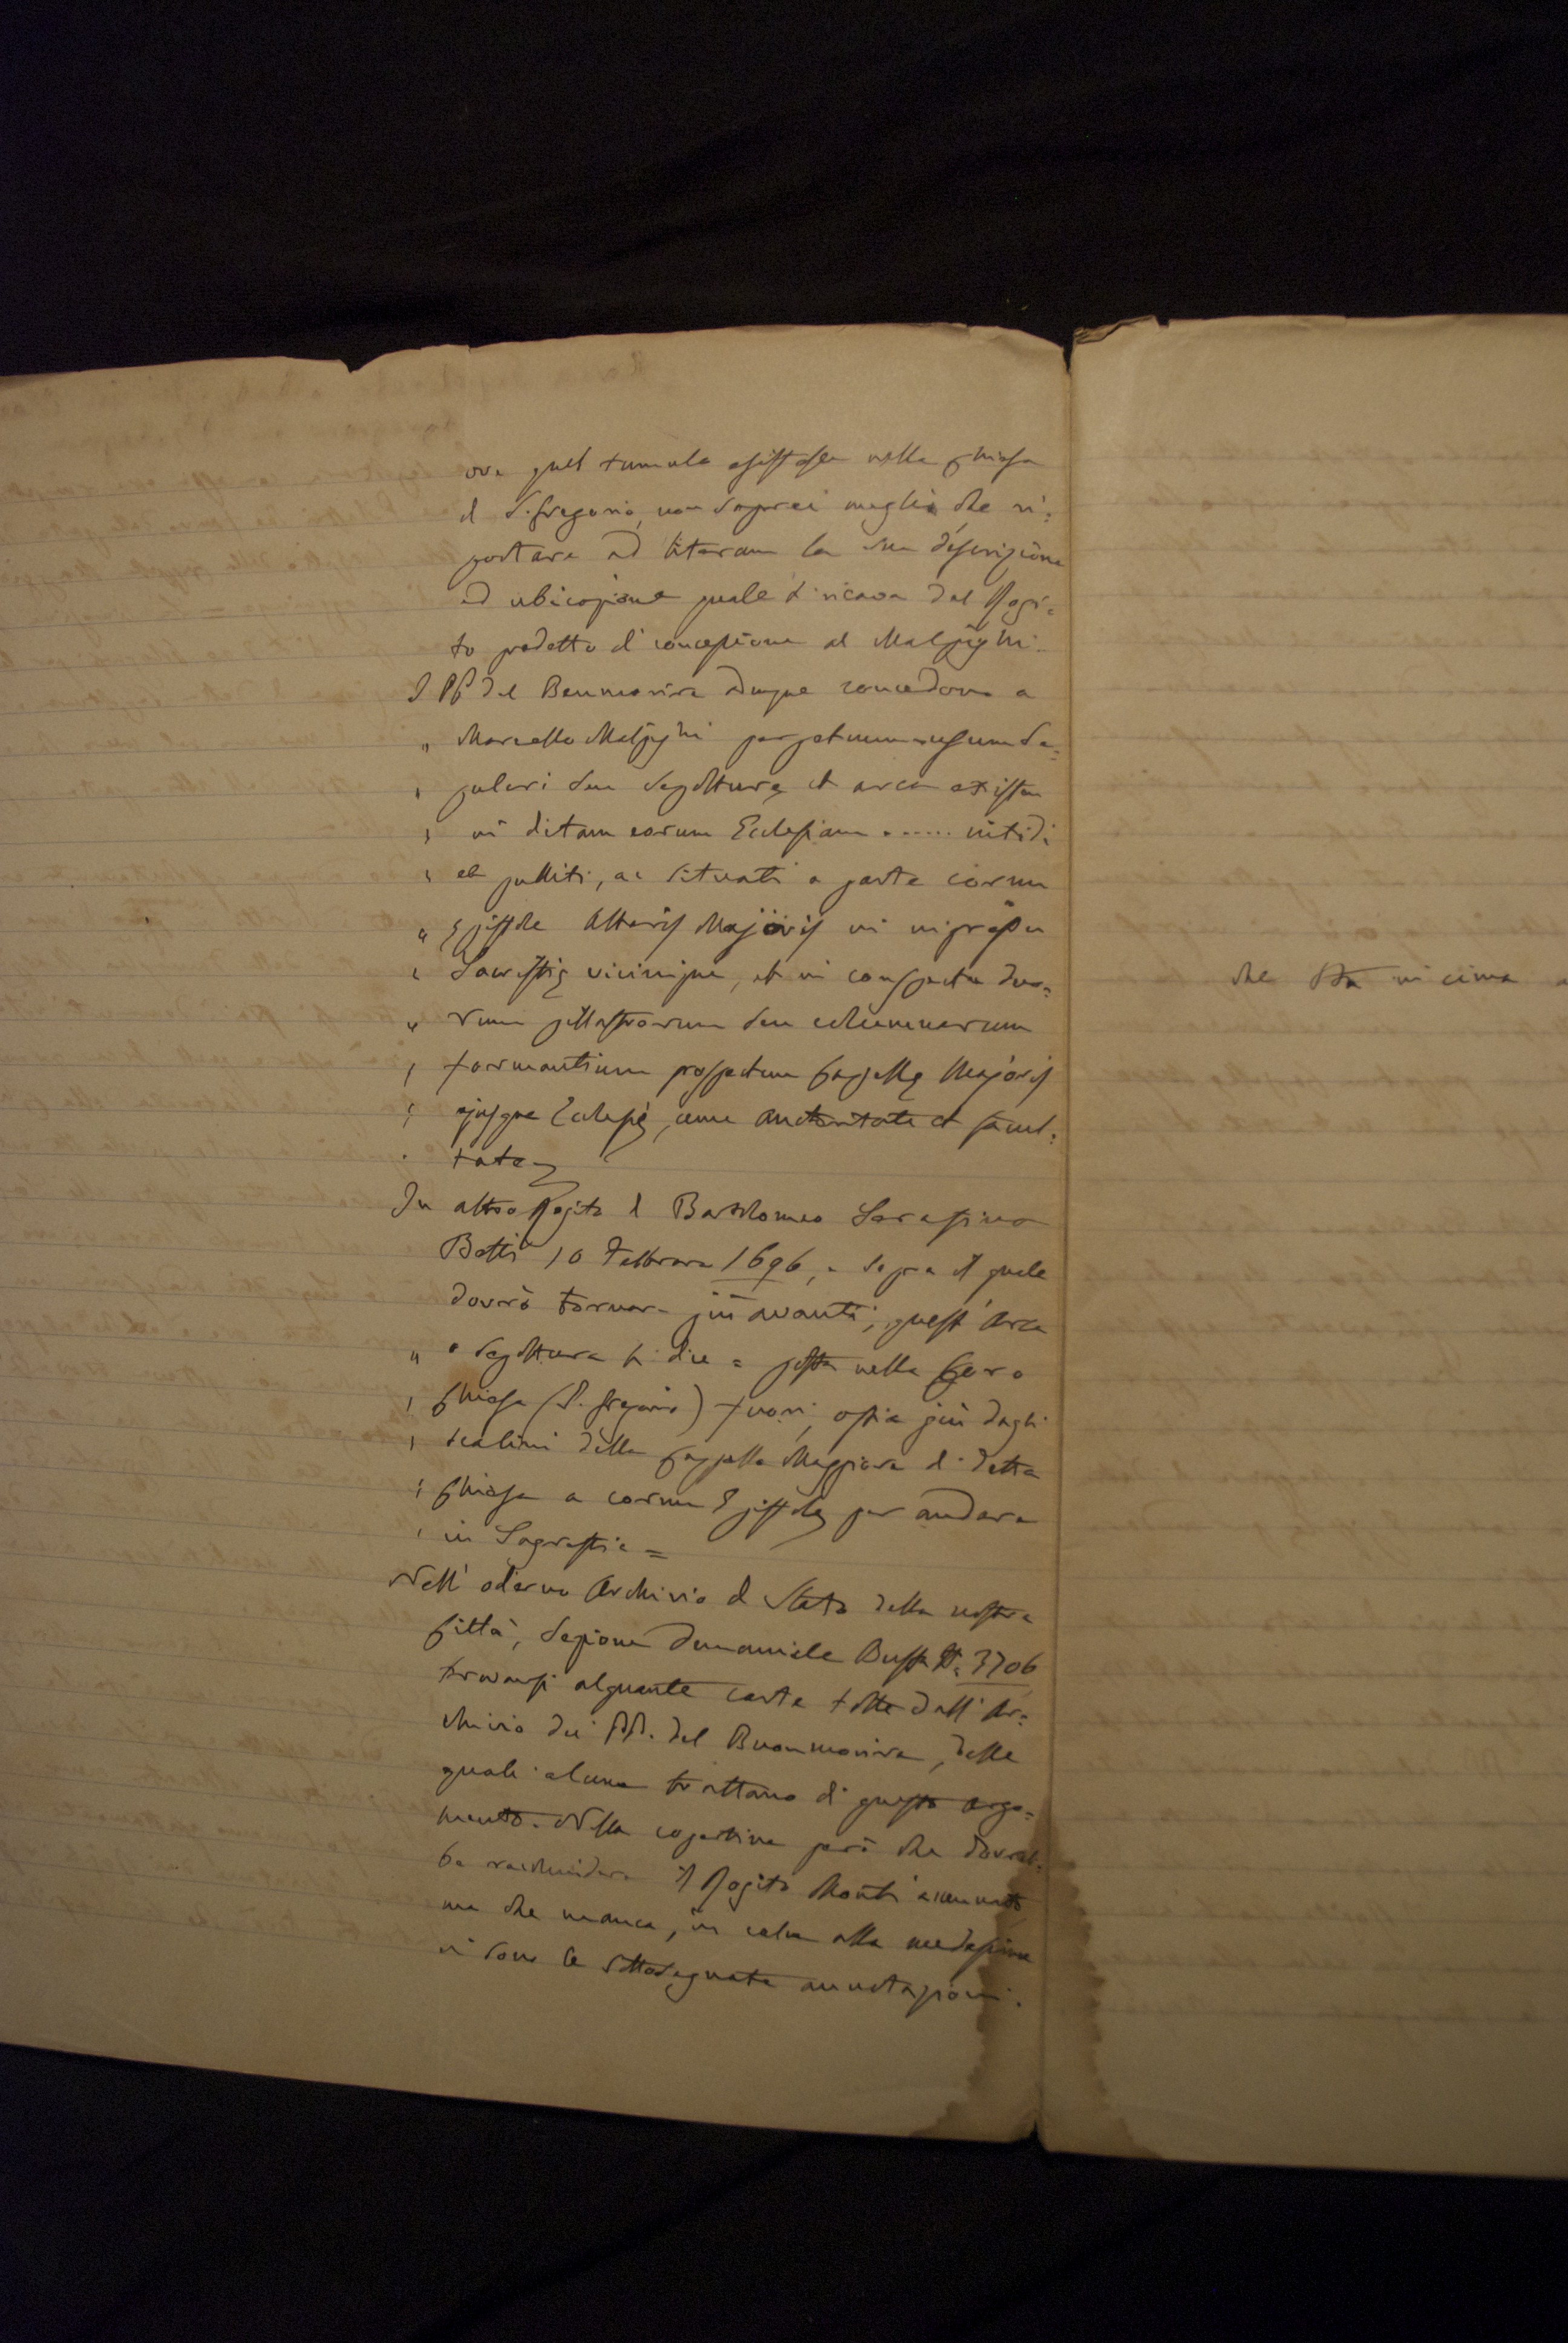 ove quel tumulo esistesse nella Chiesa
di S. Gregorio, non saprei meglio che ri=
portare ad literam la sua descrizione
ed ubicazione quale si ricava dal Rogi=
to predetto di concessione al Malpighi.
I PP. del Benmorire dunque concedono a
" Marcello Malpighi perpetuum usum Se=
" pulcri seu sepolturę et arca existen
" in dictam eorum Ecclesiam ...... nitidi
" et politi, ac situati a parte cornu
" Epistole Altaris Majoris in ingressu
" Sacristię vicinique, et in conspectu duo=
" rum pillastrorum seu columnarum
" formantium prospectum Cappellę Majoris
" ejusque Eclesię, cum auctoritate et facul=
" tate
In altro Rogito di Bartolomeo Serafino
Betti 10 Febbraro 1696, e sopra il quale
dovrò tornare più avanti, quest'arca
" o sepoltura si dice = posta nella loro
" Chiesa (S. Gregorio) fuori, ossia giù dagli
" scalini della Cappella Maggiore di detta
" Chiesa a cornu Epistolę per andare
" in Sagrestia =
Nell'odierno Archivio di Stato della nostra
Città, Sezione Demaniale Busta N. 3706
trovansi alquante carte tolte dall'Ar=
chivio dei PP. del Buonmorire, delle
quali alcune trattano di questo argo=
mento. Nella copertina però che dovreb=
be racchiudere il Rogito Monti accennato
ma che manca, in calce alla medesima
vi sono le sottosegnate annotazioni.
che sta in cima